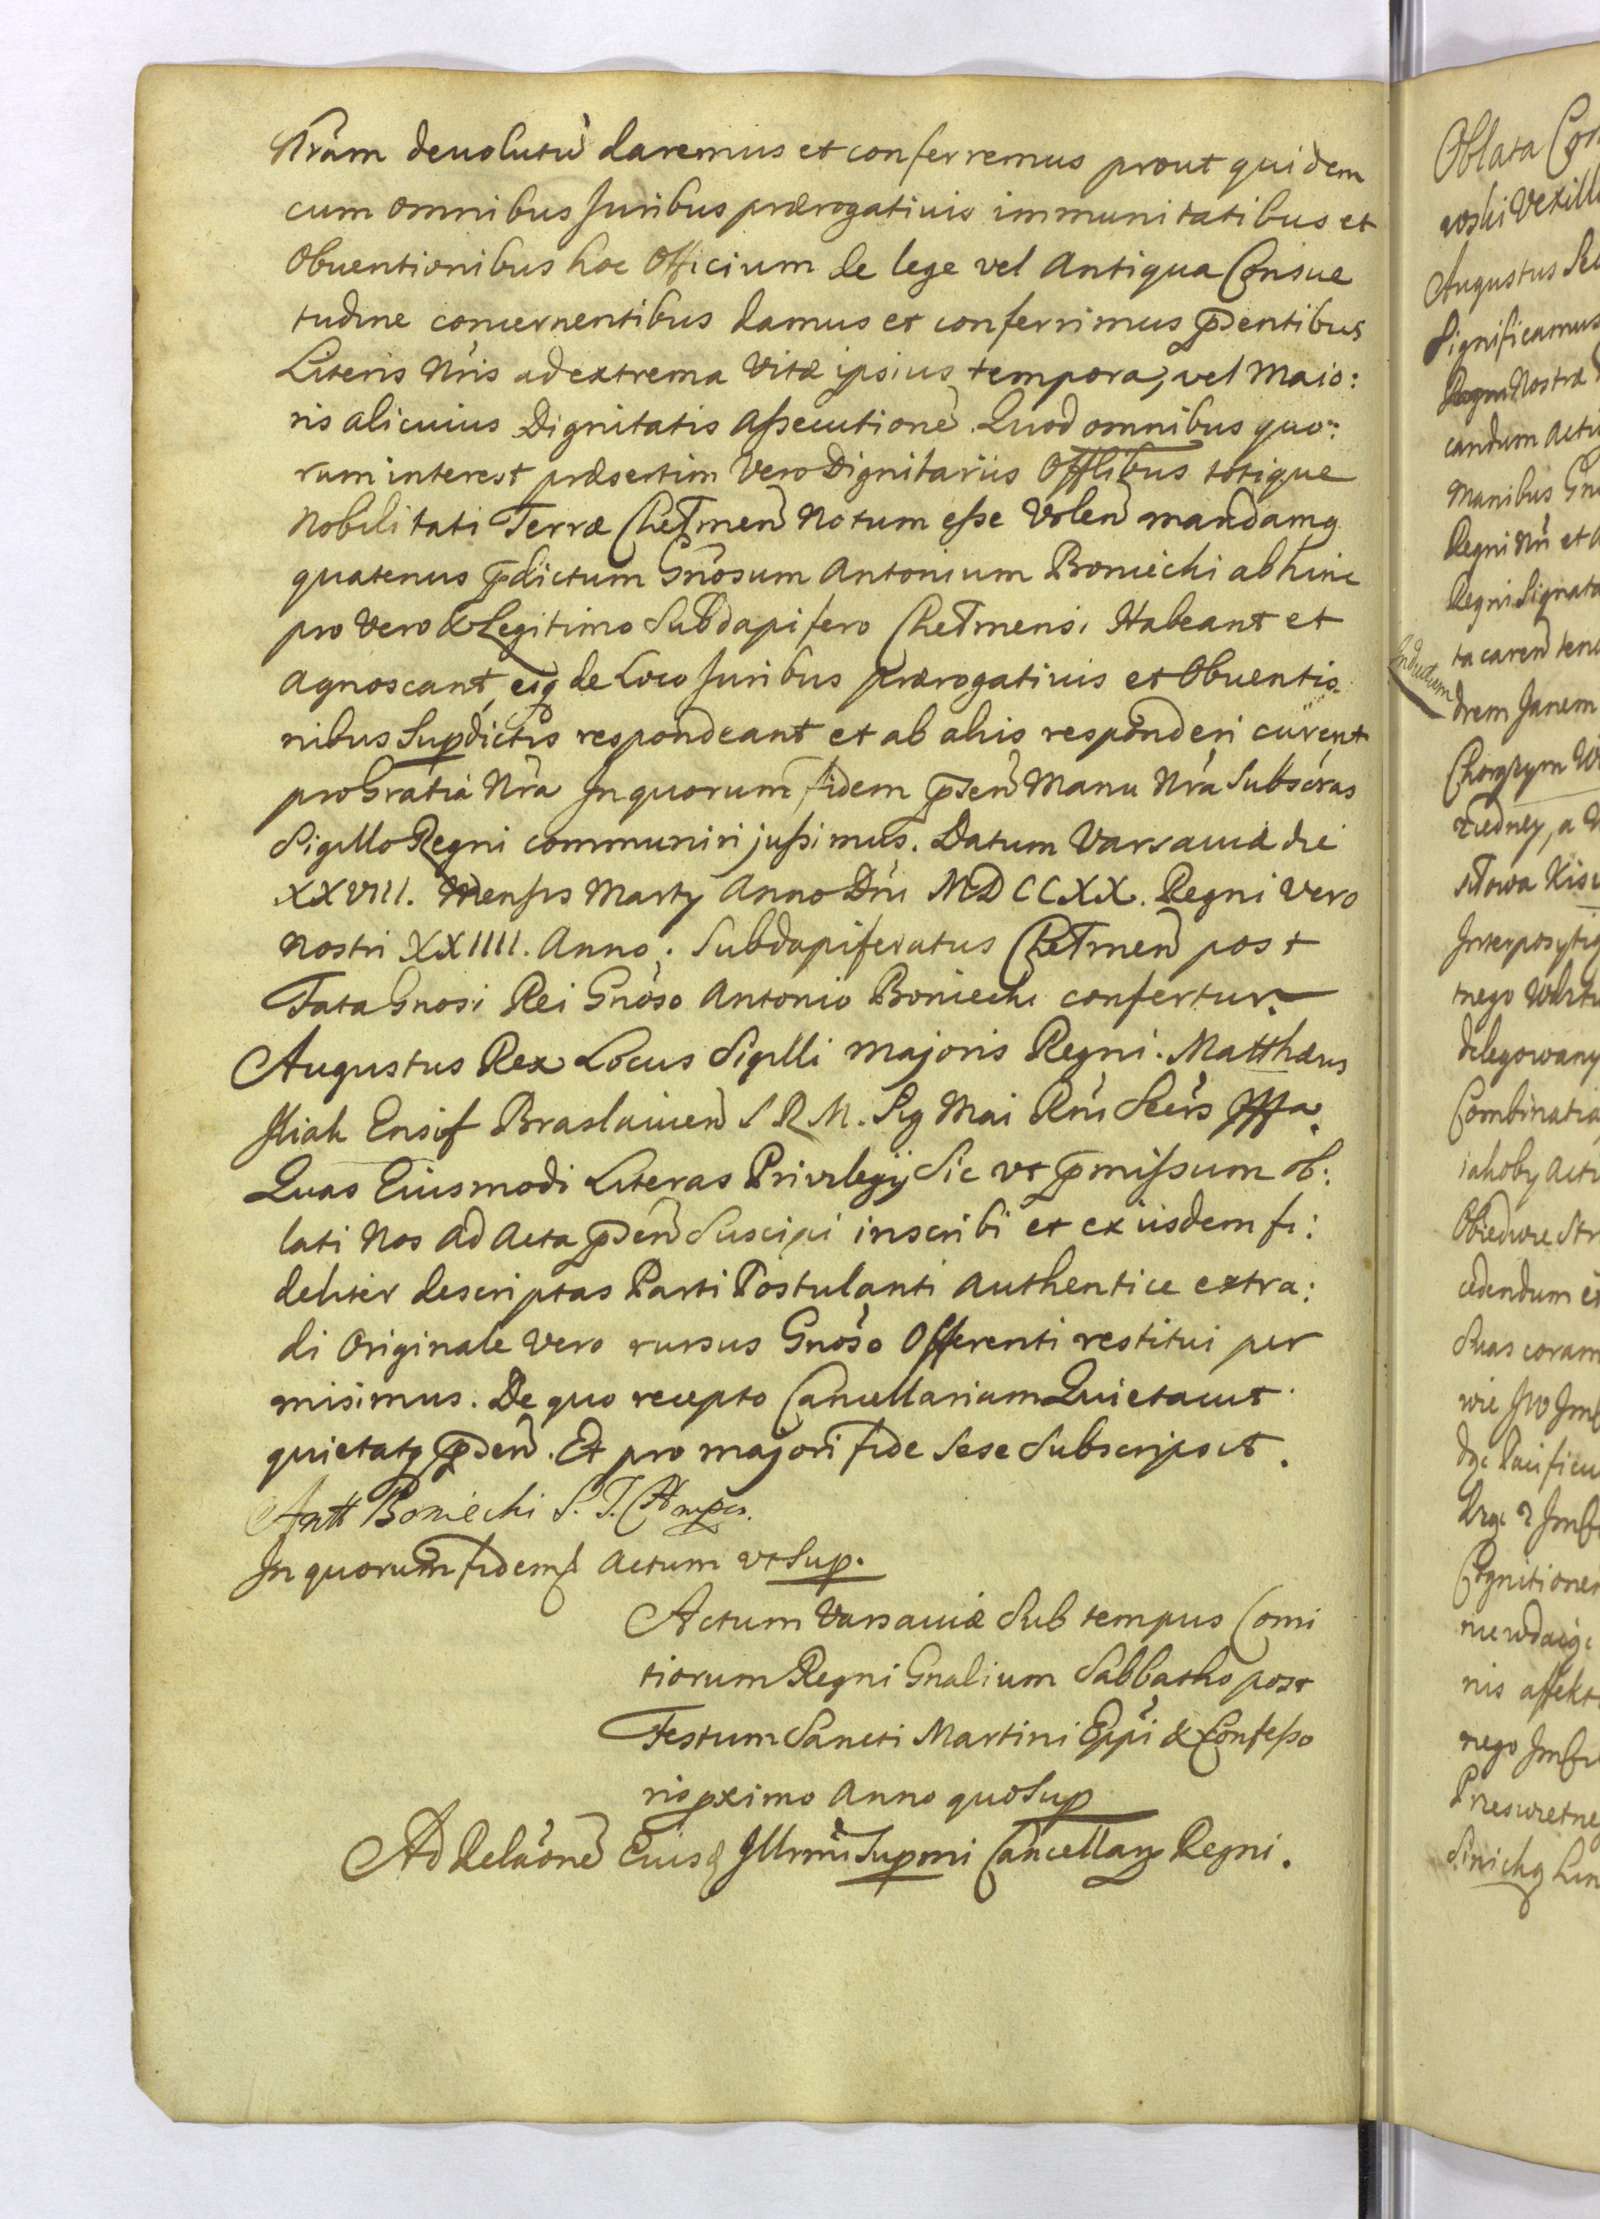 Nrãm deuolutũ daremus et conferremus prout quidem
cum omnibus Juribus prærogatiuis immunitatibus et
Obuentionibus hoc Officium de lege vel Antiqua Consue
tudine concernentibus damus et conferrimus p̃sentibus
Literis Nr̃is ad extrema Vitæ ipsius tempora, vel Maio:
ris alicuius Dignitatis assecutionẽ. Quod omnibus quo:
rum interest præsertim Vero Dignitariis Offlibus totique
Nobilitati Terræ Chełmen̄ Notum esse Volen̄ mandamq
quatenus p̃dictum Gnõsum Antonium Boniecki abhinc
pro Vero & Legitimo Subdapifero Chełmensi Habeant et
Agnoscant, eiq de Loco Juribus prærogatiuis et Obuentio:
nibus Supdictis respondeant et ab aliis responderi curent
pro Gratiã Nrã Jn quorum fidem p̃sen̄ Manu Nrã Subscr̃as
Sigillo Regni communiri jussimus. Datum Varsauiæ die
XXVIII. Mensis Martÿ Anno Dñi MDCCXX. Regni Vero
Nostri XXIIII. Anno. Subdapiferatus Chełmen̄ post
Fata Gnosi Rei Gnõso Antonio Boniecki confertur.
Augustus Rex Locus Sigilli majoris Regni. Matthæus
Ensif Braslauien̄ S R M. Sig Mai Rñi Secr̃s
Quas Eiusmodi Literas Privilegÿ Sic vt p̃missum ob:
lati Nos Ad Acta p̃sen̄ Suscipi inscribi et ex iisdem fi:
deliter descriptas Parti Postulanti Authentice extra:
di Originale Vero rursus Gnõso Offerenti restitui per
misimus. De quo recepto Cancellariam Quietauit
quietatq p̃sen̄. Et pro majori fide Sese Subscripsit.
Antt Boniecki S. T. Ch mp̃a.
Jn quorum fidem Actum vt Sup.
Actum Varsauiæ Sub tempus Comi
tiorum Regni Gnalium Sabbatho post
Festum Sancti Martini Ep̃pi & Confesso
ris pximo Anno quo Sup
Ad Relãonẽ Eiusd Jllrm̃i Supmi Cancellarÿ Regni.
Oblata
Augustus
Significamus
Nostræ
candum
Manibus
Regni Nr̃i et
Regni Signata
ta caren̄
drem Janem
Combinatia
cedendum
Suas coram
Cognitionem